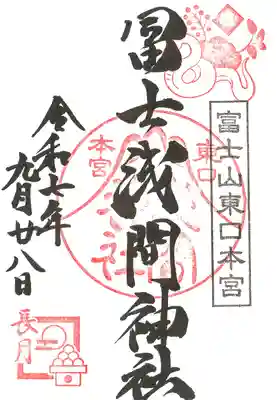 富士山東口本宮
冨士浅間神社
東口
本宮
令和七年
九月廿八日
長月